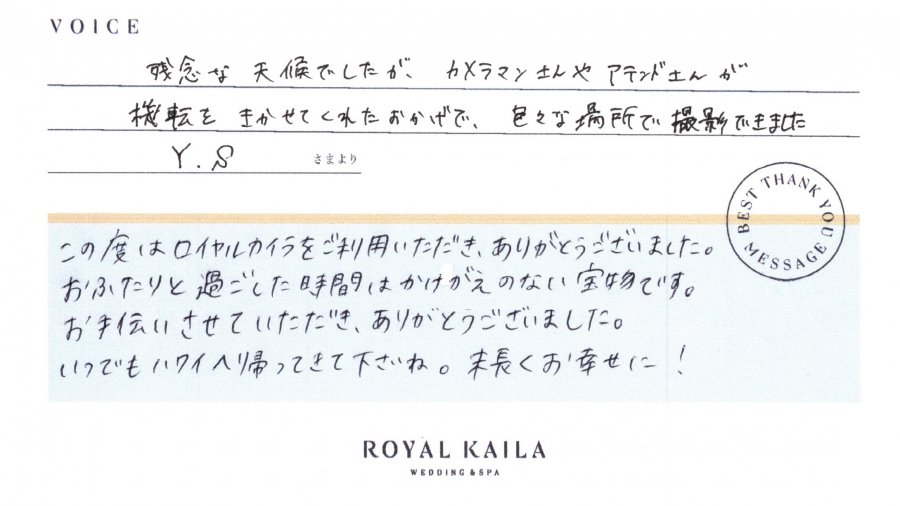 VOICE
残念な天候でしたが、カメラマンさんやアテンドさんが
機転をきかせてくれたおかげで、色々な場所で撮影できました
Y.S さまより
BEST THANK YOU MESSAGE
この度はロイヤルカイラをご利用いただき、ありがとうございました。
おふたりと過ごした時間はかけがえのない宝物です。
お手伝いさせていただき、ありがとうございました。
いつでもハワイへ帰ってきて下さいね。末長くお幸せに!
ROYAL KAILA
WEDDING & SPA